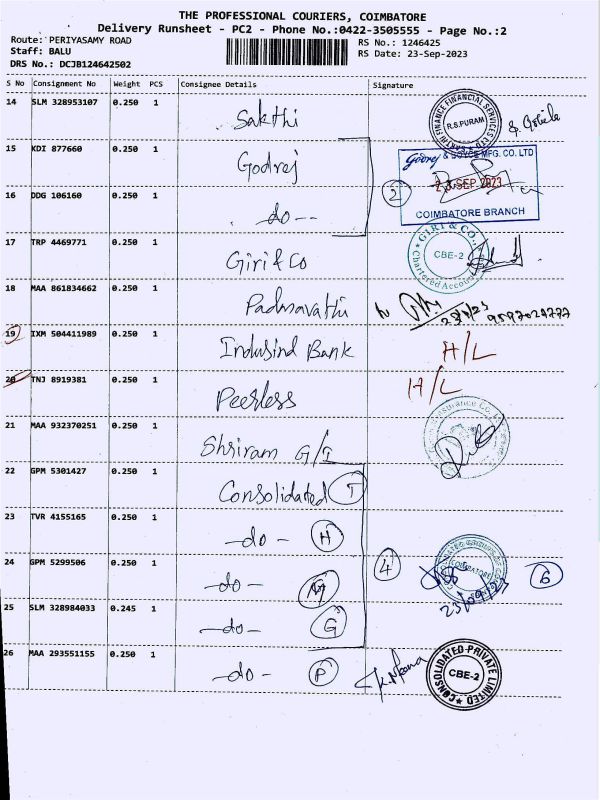 THE PROFESSIONAL COURIERS, COIMBATORE
Delivery Runsheet - PC2 - Phone No.:0422-3505555 - Page No.:2
Route: PERIYASAMY ROAD
RS No.: 1246425
Staff: BALU
RS Date: 23-Sep-2023
DRS No.: DCJB124642502
S No Consignment No Weight PCS Consignee Details Signature
14 SLM 328953107 0.250 1 Sakthi
R.S.PURAM
15 KDI 877660 0.250 1 Godrej
Godrej & BOYCE MFG. CO. LTD
2 23 SEP 2023
COIMBATORE BRANCH
16 DDG 106160 0.250 1 -do--
17 TRP 4469771 0.250 1 Giri & Co
GIRI & CO., CBE-2 Chartered Accou
18 MAA 861834662 0.250 1 Padmavathi
19 IXM 504411989 0.250 1 Indusind Bank H/L
20 TNJ 8919381 0.250 1 Peerless H/L
21 MAA 932370251 0.250 1 Shriram G/I
22 GPM 5301427 0.250 1 Consolidated T
23 TVR 4155165 0.250 1 -do- H
24 GPM 5299506 0.250 1 -do-
4
23/09/23
6
25 SLM 328984033 0.245 1 -do- G
26 MAA 293551155 0.250 1 -do- P
CONSOLIDATED PRIVATE LIMITED CBE-2